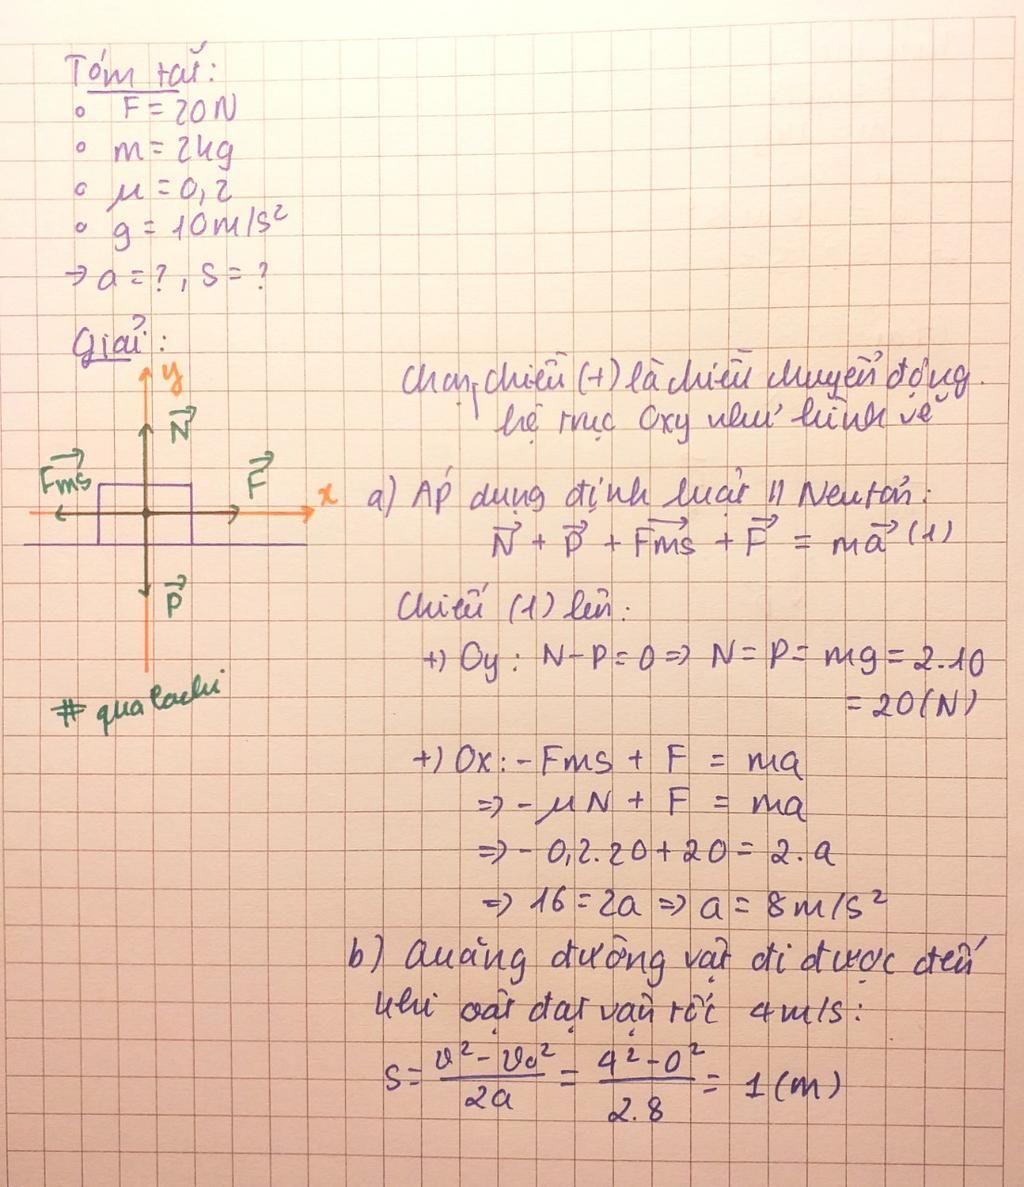 Tóm tắt:
F = 20N
m = 2kg
μ = 0,2
g = 10m/s²
→ a = ?, s = ?
Giải:
y
N
Fms
F
x
P
# qualachi
Chọn chiều (+) là chiều chuyển động.
hệ trục Oxy như hình vẽ
a) Áp dụng định luật II Newton:
N + P + Fms + F = ma (1)
Chiếu (1) lên:
+) Oy: N-P=0 => N=P= mg = 2.10
= 20(N)
+) Ox: - Fms + F = ma
=> - μN + F = ma
=> - 0,2.20+20 = 2.a
=> 16 = 2a => a = 8m/s²
b) Quãng đường vật đi được đến
khi vật đạt vận tốc 4m/s:
s = (v² - v₀²)/2a = (4² - 0²)/2.8 = 1 (m)